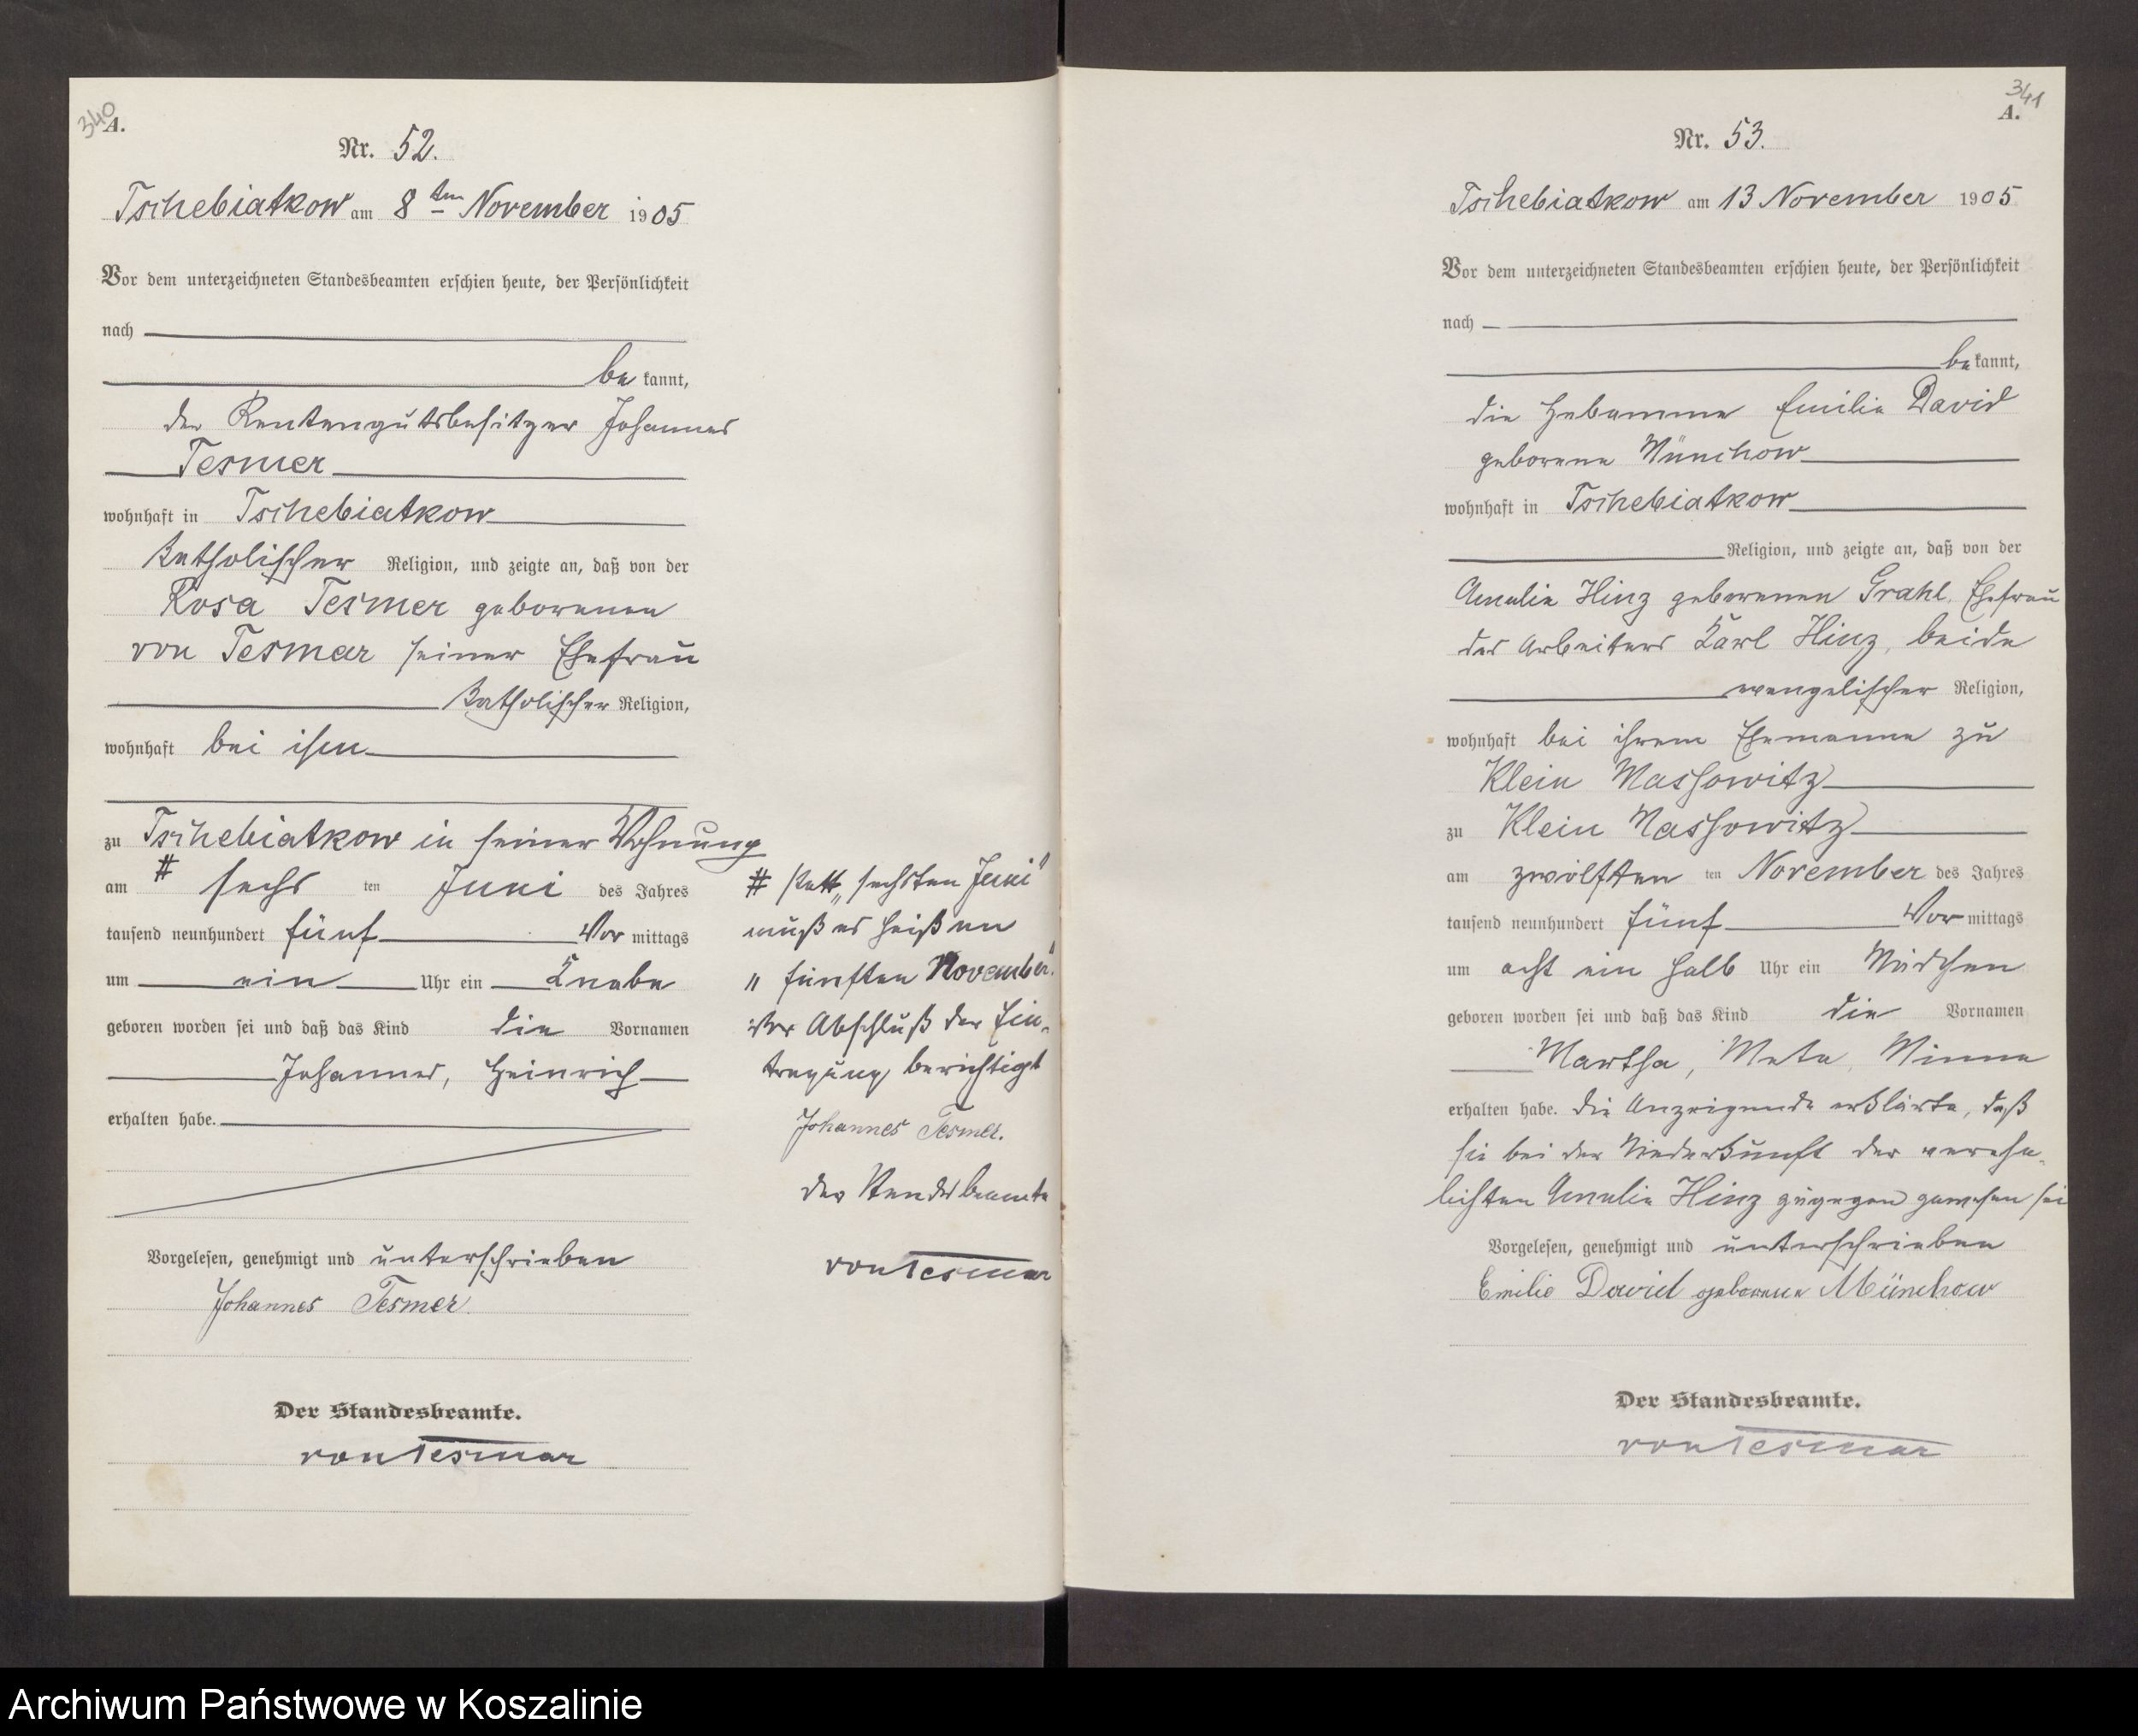 340
A.
Nr. 52.
Tschebiatkow am 8ten November 1905
Vor dem unterzeichneten Standesbeamten erschien heute, der Persönlichkeit
nach
be kannt,
der Rentengutsbesitzer Johannes
Tesmer
wohnhaft in Tschebiatkow
Katholischer Religion, und zeigte an, daß von der
Rosa Tesmer geborenen
von Tesmar seiner Ehefrau
Katholischer Religion,
wohnhaft bei ihm
zu Tschebiatkow in seiner Wohnung
am # sechs ten Juni des Jahres
tausend neunhundert fünf Vor mittags
um ein Uhr ein Knabe
geboren worden sei und daß das Kind die Vornamen
Johannes, Heinrich
erhalten habe.
Vorgelesen, genehmigt und unterschrieben
Johannes Tesmer
Der Standesbeamte.
von Tesmar
# statt „sechsten Juni"
muß es heißen
„fünften November".
Vor Abschluß der Ein-
tragung berichtigt
Johannes Tesmer.
der Standesbeamte
von Tesmar
341
A.
Nr. 53.
Tschebiatkow am 13 November 1905
Vor dem unterzeichneten Standesbeamten erschien heute, der Persönlichkeit
nach
be kannt,
die Hebamme Emilie David
geborene Münchow
wohnhaft in Tschebiatkow
Religion, und zeigte an, daß von der
Amalie Hinz geborenen Grahl, Ehefrau
des Arbeiters Karl Hinz, beide
evangelischer Religion,
wohnhaft bei ihrem Ehemanne zu
Klein Massowitz
zu Klein Massowitz
am zwölften ten November des Jahres
tausend neunhundert fünf Vor mittags
um acht ein halb Uhr ein Mädchen
geboren worden sei und daß das Kind die Vornamen
Martha, Meta, Minna
erhalten habe. Die Anzeigende erklärte, daß
sie bei der Niederkunft der verehe-
lichten Amalie Hinz zugegen gewesen sei
Vorgelesen, genehmigt und unterschrieben
Emilie David geborene Münchow
Der Standesbeamte.
von Tesmar
Archiwum Państwowe w Koszalinie